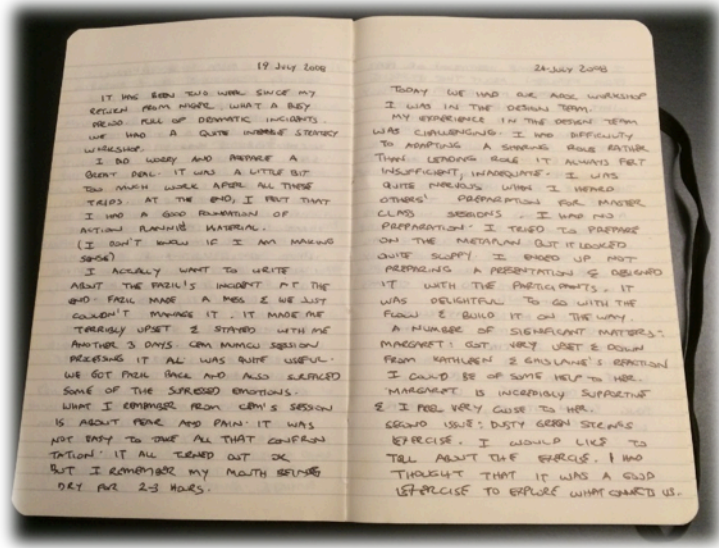 19 JULY 2008
IT HAS BEEN TWO WEEK SINCE MY
RETURN FROM NIGER. WHAT A BUSY
PERIOD FULL OF DRAMATIC INCIDENTS.
WE HAD A QUITE STRATEGY
WORKSHOP.
I DID WORRY AND PREPARE A
GREAT DEAL. IT WAS A LITTLE BIT
TOO MUCH WORK AFTER ALL THESE
TRIPS. AT THE END, I FELT THAT
I HAD A GOOD FOUNDATION OF
ACTION PLANNING MATERIAL.
(I DON'T KNOW IF I AM MAKING
SENSE)
I ACTUALLY WANT TO WRITE
ABOUT THE FAZIL'S INCIDENT AT THE
END. FAZIL MADE A MESS & WE JUST
COULDN'T MANAGE IT. IT MADE ME
TERRIBLY UPSET & STAYED WITH ME
ANOTHER 3 DAYS. CEM MUMCU SESSION
PROCESSING IT ALL WAS QUITE USEFUL.
WE GOT FAZIL BACK AND ALSO SURFACED
SOME OF THE SUPRESSED EMOTIONS.
WHAT I REMEMBER FROM CEM'S SESSION
IS ABOUT FEAR AND PAIN. IT WAS
NOT EASY TO TAKE ALL THAT CONFRON
TATION. IT ALL TURNED OUT OK
BUT I REMEMBER MY MOUTH BEING
DRY FOR 2-3 HOURS.
26 JULY 2008
TODAY WE HAD OUR WORKSHOP
I WAS IN THE DESIGN TEAM.
MY EXPERIENCE IN THE DESIGN TEAM
WAS CHALLENGING. I HAD DIFFICULTY
TO ADAPTING A SHARING ROLE RATHER
THAN LEADING ROLE IT ALWAYS FELT
INSUFFICIENT, INADEQUATE. I WAS
QUITE NERVOUS WHEN I HEARD
OTHERS' PREPARATION FOR MASTER
CLASS SESSIONS. I HAD NO
PREPARATION. I TRIED TO PREPARE
ON THE METAPLAN BUT IT LOOKED
QUITE SLOPPY I ENDED UP NOT
PREPARING A PRESENTATION & DESIGNED
IT WITH THE PARTICIPANTS. IT
WAS DELIGHTFUL TO GO WITH THE
FLOW & BUILD IT ON THE WAY.
A NUMBER OF SIGNIFICANT MATTERS:
MARGARET: GOT VERY UPSET & DOWN
FROM KATHLEEN & GHISLAINE'S REACTION
I COULD BE OF SOME HELP TO HER.
MARGARET IS INCREDIBLY SUPPORTIVE
& I FEEL VERY CLOSE TO HER.
SECOND ISSUE: DUSTY GREEN STRINGS
EXERCISE. I WOULD LIKE TO
TELL ABOUT THE EXERCISE. I HAD
THOUGHT THAT IT WAS A GOOD
EXERCISE TO EXPLORE WHAT CONNECTS US.